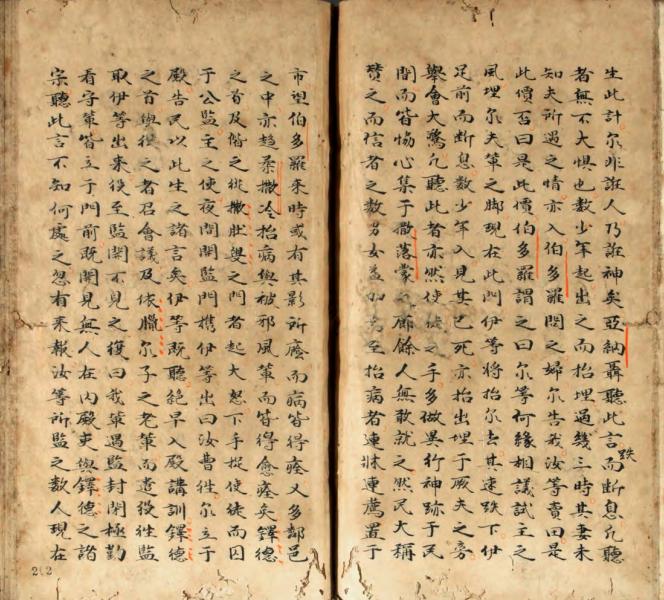 生此計尔非誑人乃誑神矣亞納聶聽此言而跌斷息凡聽
者無不大惧也数少年起出之而抬埋過幾三時其妻未
知夫所遇之情亦入伯多羅問之婦尔告我汝等賣田是
此價否曰是此價伯多羅謂之曰尔等何緣相議試主之
風埋尔夫等之脚現在此門伊等將抬尔去其速跌下伊
足前而断息数少年入見其已死亦抬出埋于厥夫之旁
舉會大驚凡聽此者亦然使徒之手多做異行神跡于民
間而皆恊心集于撒落蒙之廊餘人無敢就之然民大稱
賛之而信者之数男女益加焉至抬病者連牀連薦置于
市望伯多羅来時或有其影所廕而病皆得痊又多鄰邑
之中亦趋柔撒冷抬病與被邪風等而皆得愈痊矣鐸德
之首及偕之従撒肚叟之門者起大怒下手捉使徒而囚
于公監主之使夜間開監門携伊等出曰汝曹徃尔立于
殿告民以此生之諸言矣伊等既聽絕早入殿講訓鐸德
之首與従之者召會議及依臘尔子之老等而遣役徃監
取伊等出来役至監開不見之復曰我等遇監封閉極勤
看守等皆立于門前既開見無人在内殿吏與鐸德之諸
宗聽此言不知何處之忽有来報汝等所監之数人現在
202